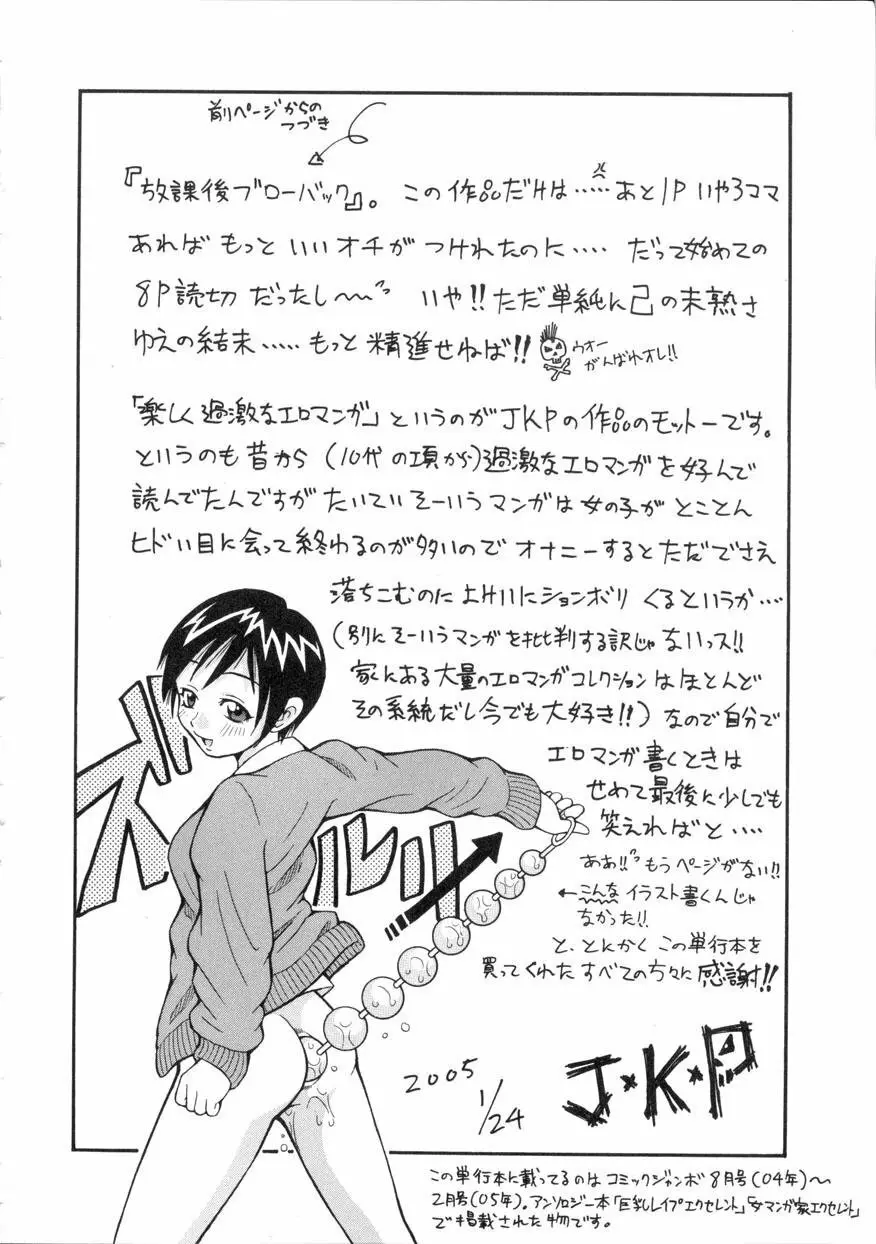 前ページからの
つづき
『放課後ブローバック』。この作品だけは……あと1P いや3コマ
あればもっといいオチがつけれたのに…… だって始めての
8P読切だったし〜〜 いや!!ただ単純に己の未熟さ
ゆえの結末……もっと精進せねば!!
ウオー
がんばれオレ!!
「楽しく過激なエロマンガ」というのがJKPの作品のモットーです。
というのも昔から(10代の項から)過激なエロマンガを好んで
読んでたんですがたいていそーいうマンガは女の子がとことん
ヒドい目に会って終わるのが多いのでオナニーするとただでさえ
落ちこむのによけいにションボリくるというか…
(別にそーいうマンガを批判する訳じゃないっス!!
家にある大量のエロマンガコレクションはほとんど
その系統だし今でも大好き!!)なので自分で
エロマンガ書くときは
せめて最後に少しでも
笑えればと……
ああ!!もうページがない!!
←こんなイラスト書くんじゃ
なかった!!
と、とんかくこの単行本を
買ってくれたすべての方々に感謝!!
ズルルリ
2005
1/24
J・K・P
この単行本に載ってるのはコミックジャンボ8月号(04年)〜
2月号(05年)。アンソロジー本「巨乳レイプエクセレント」「女マンガ家エクセレント」
で掲載された物です。